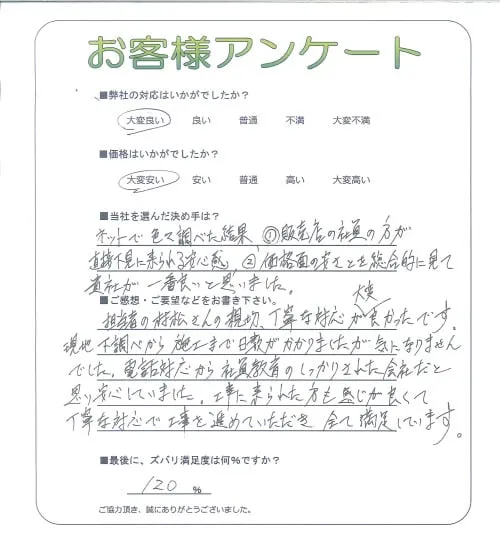 お客様アンケート
■弊社の対応はいかがでしたか？
大変良い 良い 普通 不満 大変不満
■価格はいかがでしたか？
大変安い 安い 普通 高い 大変高い
■当社を選んだ決め手は？
ネットで色々調べた結果 ①販売店の社員の方が
直接下見に来られる安心感 ②価格面の安さとを総合的に見て
貴社が一番良いと思いました。
■ご感想・ご要望などをお書き下さい。
大変
担当者の村松さんの親切、丁寧な対応が良かったです。
現地下調べから施工まで日数がかかりましたが気になりません
でした。電話対応から社員教育のしっかりされた会社だと
思い安心していました。工事に来られた方も感じが良くて
丁寧な対応で工事を進めていただき 全て満足しています。
■最後に、ズバリ満足度は何％ですか？
120 %
ご協力頂き、誠にありがとうございました。